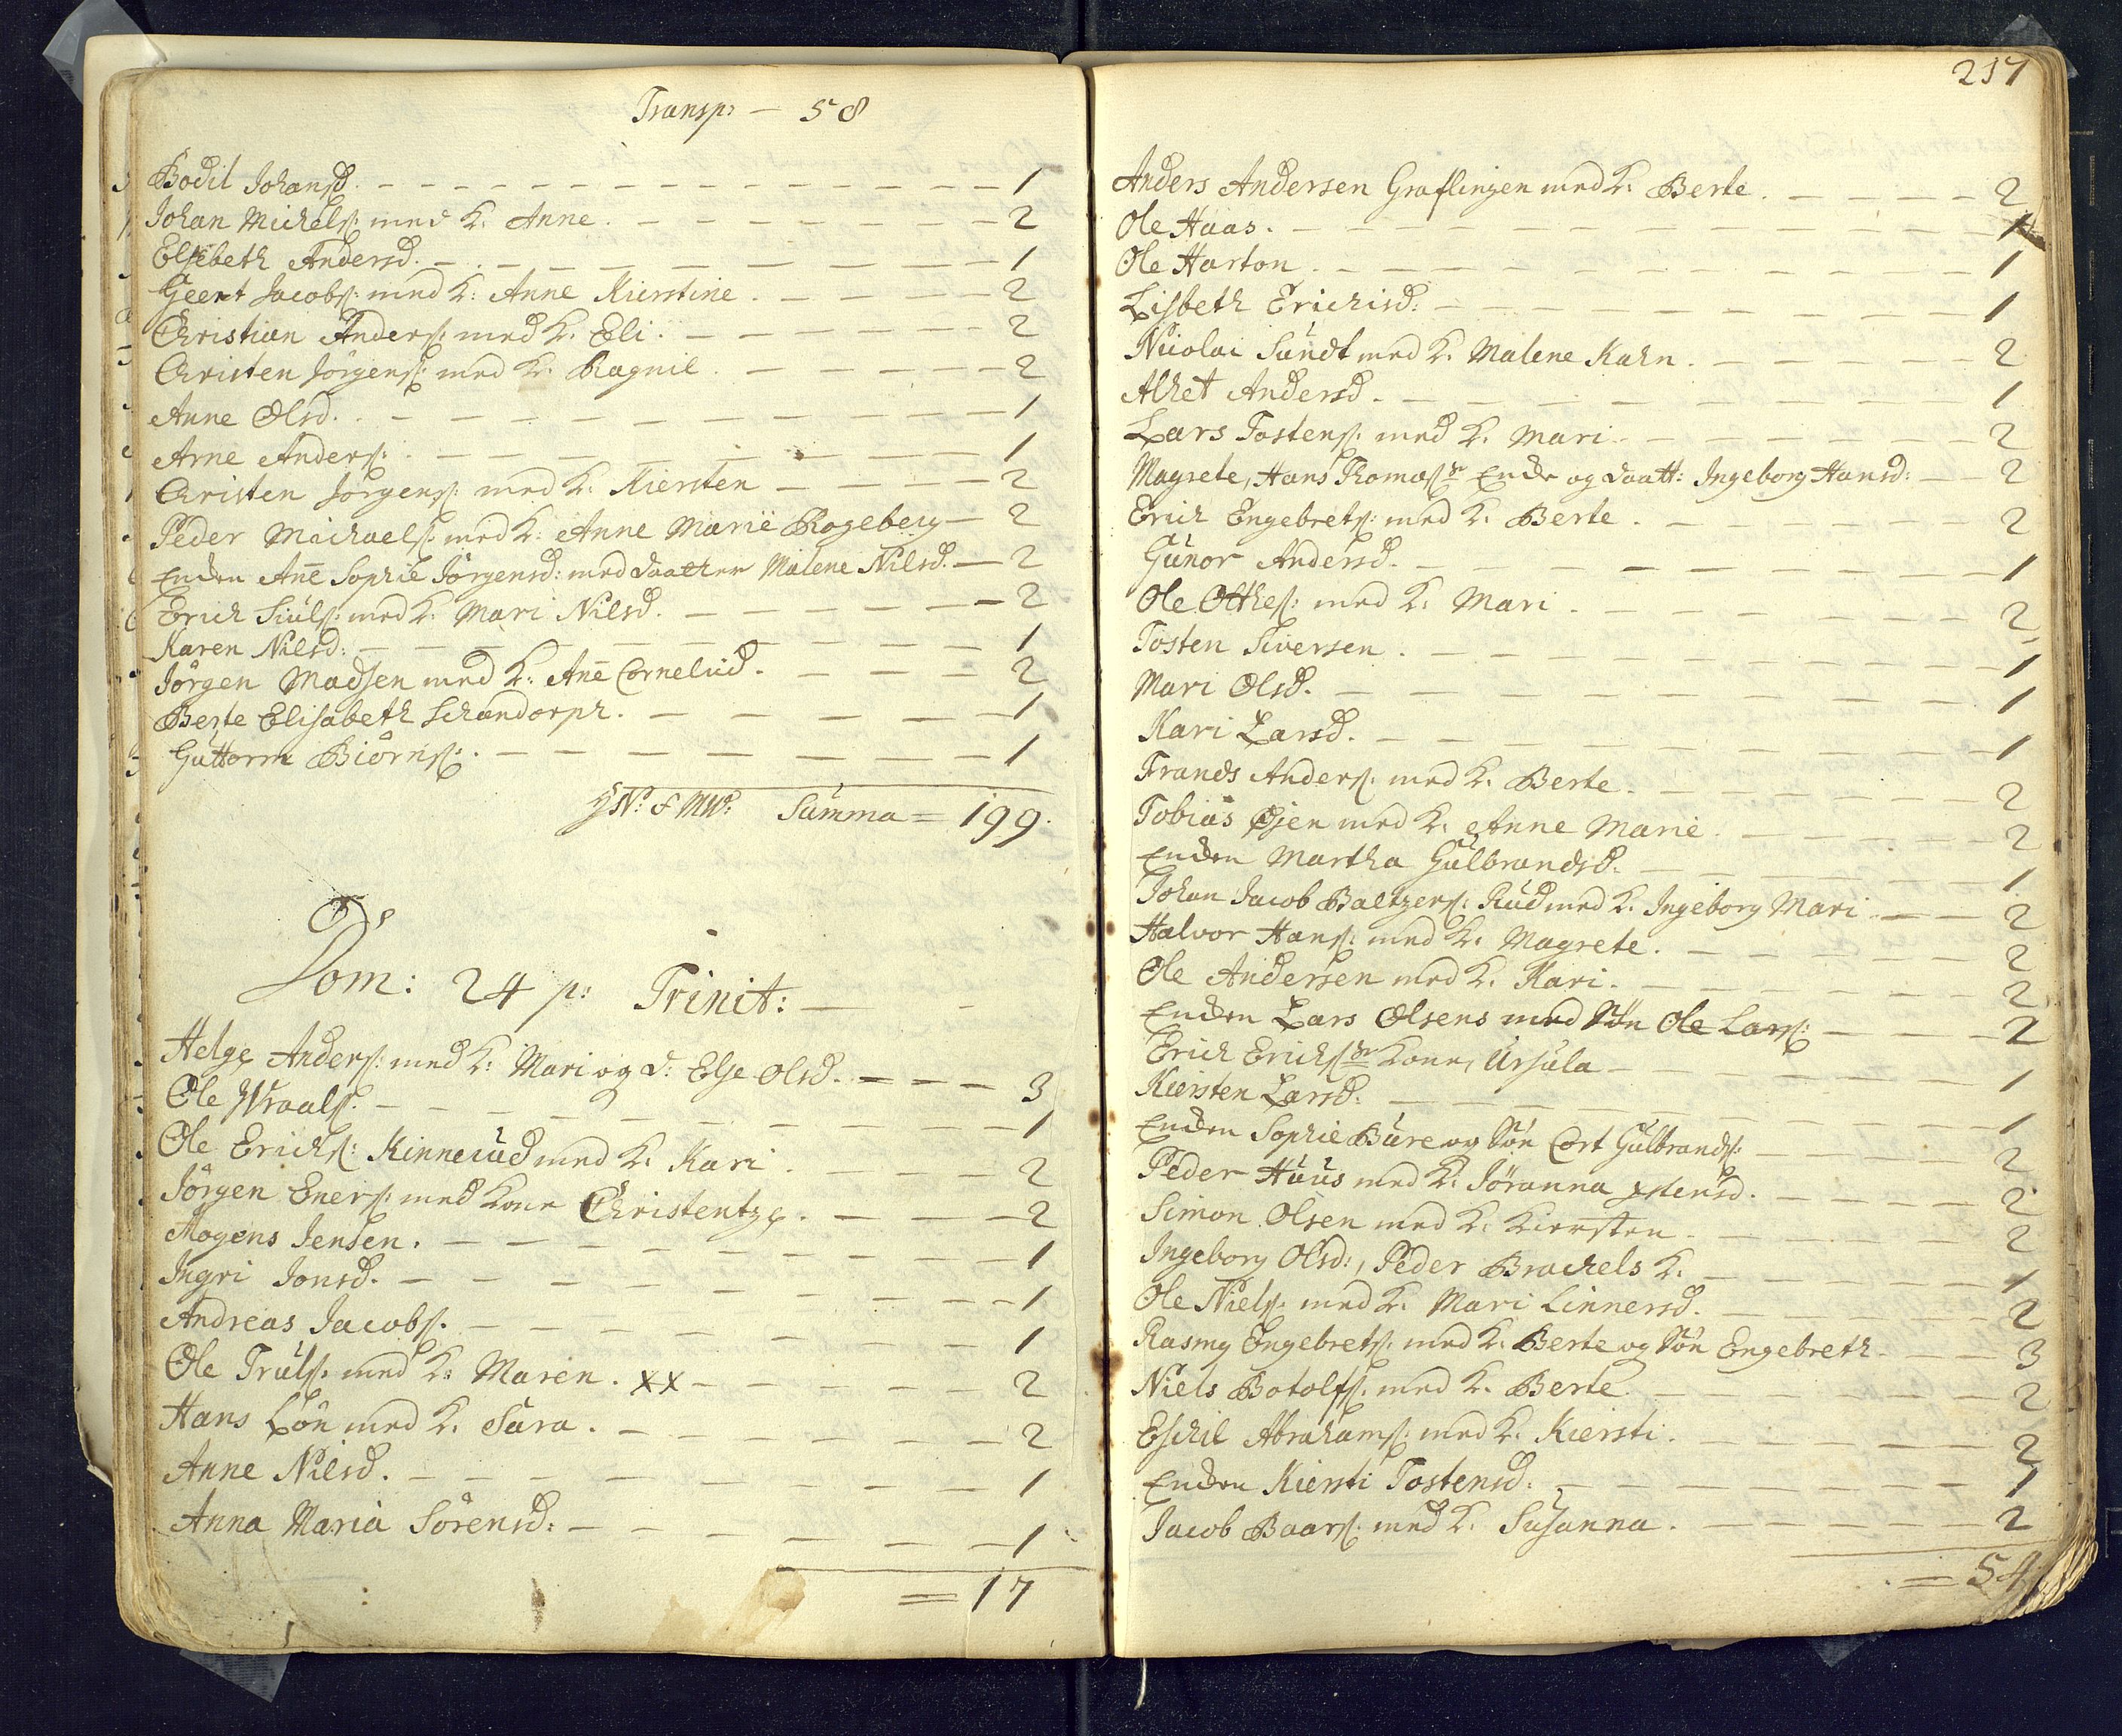 Transp: — 58
Bodil Johansd. — 1
Johan Michels: med K. Anne. — 2
Elsebeth Andersd. — 1
Geert Jacobs: med K: Anne Kierstine. — 2
Christian Anders: med K. Eli. — 2
Christen Jörgens: med K. Ragnil. — 2
Anne Olsd. — 1
Arne Anders: — 1
Christen Jörgens: med K. Kiersten — 2
Peder Michaels: med K: Anne Marie Rogeberg — 2
Enken Ane Sophie Jörgensd: med daatter Malene Nilsd. — 2
Erich Siuls: med K. Mari Nilsd. — 2
Karen Nilsd: — 1
Jörgen Madsen med K: Ane Cornelud. — 2
Berte Elisabeth Schandorph. — 1
Guttorm Biörns: — 1
Summa = 199.
Dom: 24 p: Trinit: —
Helge Anders: med K: Mari og d: Else Olsd. — 3
Ole Wraals: — 1
Ole Erichs: Kinnerud med K. Kari. — 2
Jörgen Eners: med Kone Christentze. — 2
Mogens Jensen. — 1
Ingri Jonsd. — 1
Andreas Jacobs. — 1
Ole Truls: med K: Maren. xx — 2
Hans Lön med K. Sara. — 2
Anne Nilsd. — 1
Anna Maria Sörensd: — 1
= 17
217
Anders Andersen Graflingen med K: Berte. — 2
Ole Haas. — 1
Ole Harton. — 1
Lisbeth Erichsd: — 1
Nicolai Sundt med K. Malene Kahn. — 2
Alhet Andersd. — 1
Lars Tostens: med K. Mari. — 2
Magrete, Hans Thomas: Enke og daatt: Ingeborg Hansd: — 2
Erich Engebrets: med K. Berte. — 2
Gunor Andersd. — 1
Ole Othes: med K: Mari. — 2
Tosten Siversen. — 1
Mari Olsd. — 1
Kari Larsd. — 1
Frands Anders: med K. Berte. — 2
Tobias Øjen med K. Anne Marie. — 2
Enken Martha Gulbrandsd. — 1
Johan Jacob Baltzers: Rud med K. Ingeborg Mari — 2
Halvor Hans: med K. Magrete. — 2
Ole Andersen med K. Kari. — 2
Enken Lars Olsens med Sön Ole Lars: — 2
Erich Erichs: Kone, Ursula — 1
Kiersten Larsd: — 1
Enken Sophie Bure og Sön Cort Gulbrands: — 2
Peder Huus med K. Jöranna Ostensd. — 2
Simon Olsen med K: Kiersten. — 2
Ingeborg Olsd:, Peder Brachels K. — 1
Ole Niels: med K. Mari Linnersd. — 2
Rasmg Engebrets: med K. Berte og Sön Engebreth. — 3
Niels Botolfs: med K. Berte. — 2
Eschil Abrahams: med K. Kiersti. — 2
Enken Kiersti Tostensd: — 1
Jacob Baars: med K. Susanna. — 2
= 54